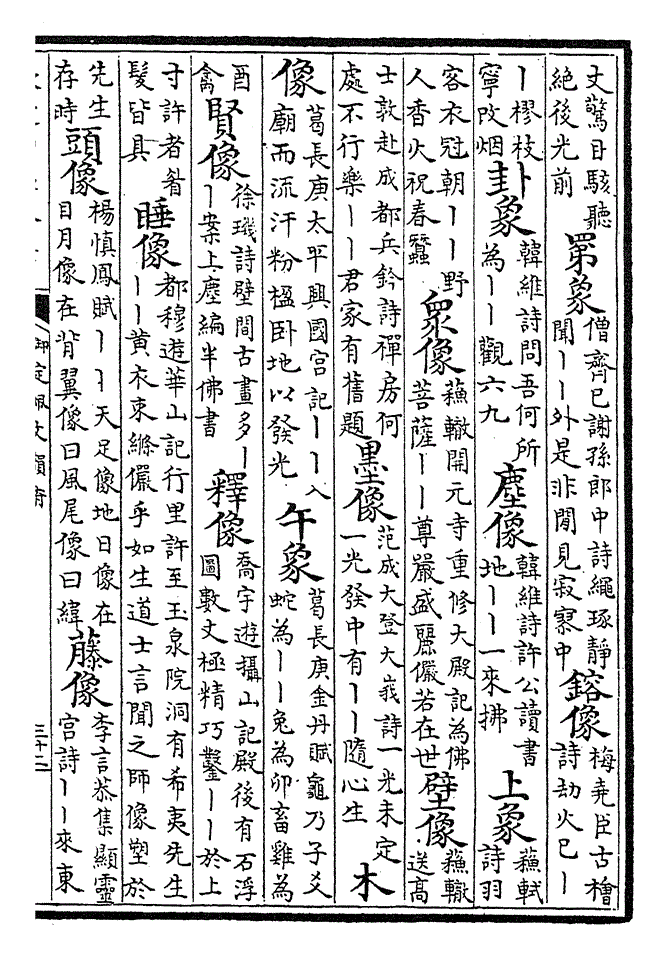 丈驚目駭聽絕後光前罤象僧齊己謝孫郎中詩繩琢靜聞丨丨外是非閒見寂寥中鎔像梅堯臣古檜詩劫火已丨
丨樛枝寧改烟卦象韓維詩問吾何所為丨丨觀六九塵像韓維詩許公讀書地丨丨一來拂上象蘇軾詩羽
客衣冠朝丨丨野人香火祝春蠶衆像蘇轍開元寺重修大殿記為佛菩薩丨丨尊嚴盛麗儼若在世壁像蘇轍送高
士敦赴成都兵鈐詩禪房何處不行樂丨丨君家有舊題墨像范成大登大峩詩一光未定一光發中有丨丨隨心生木
像葛長庚太平興國宮記丨丨入廟而流汗粉楹卧地以發光午象葛長庚金丹賦龜乃子爻蛇為丨丨兔為卯畜雞為
酉禽賢像徐璣詩壁間古畫多丨丨案上塵編半佛書釋像喬宇遊攝山記殿後有石浮圖數丈極精巧鑿丨丨於上
寸許者眉髮皆具睡像都穆遊華山記行里許至玉泉院洞有希夷先生丨丨黄衣束絛儼乎如生道士言聞之師像塑於
先生存時頭像楊慎鳳賦丨丨天足像地日像在目月像在背翼像曰風尾像曰緯藤像李言恭集顯靈宮詩丨丨來東
御定佩文韻府
三十二